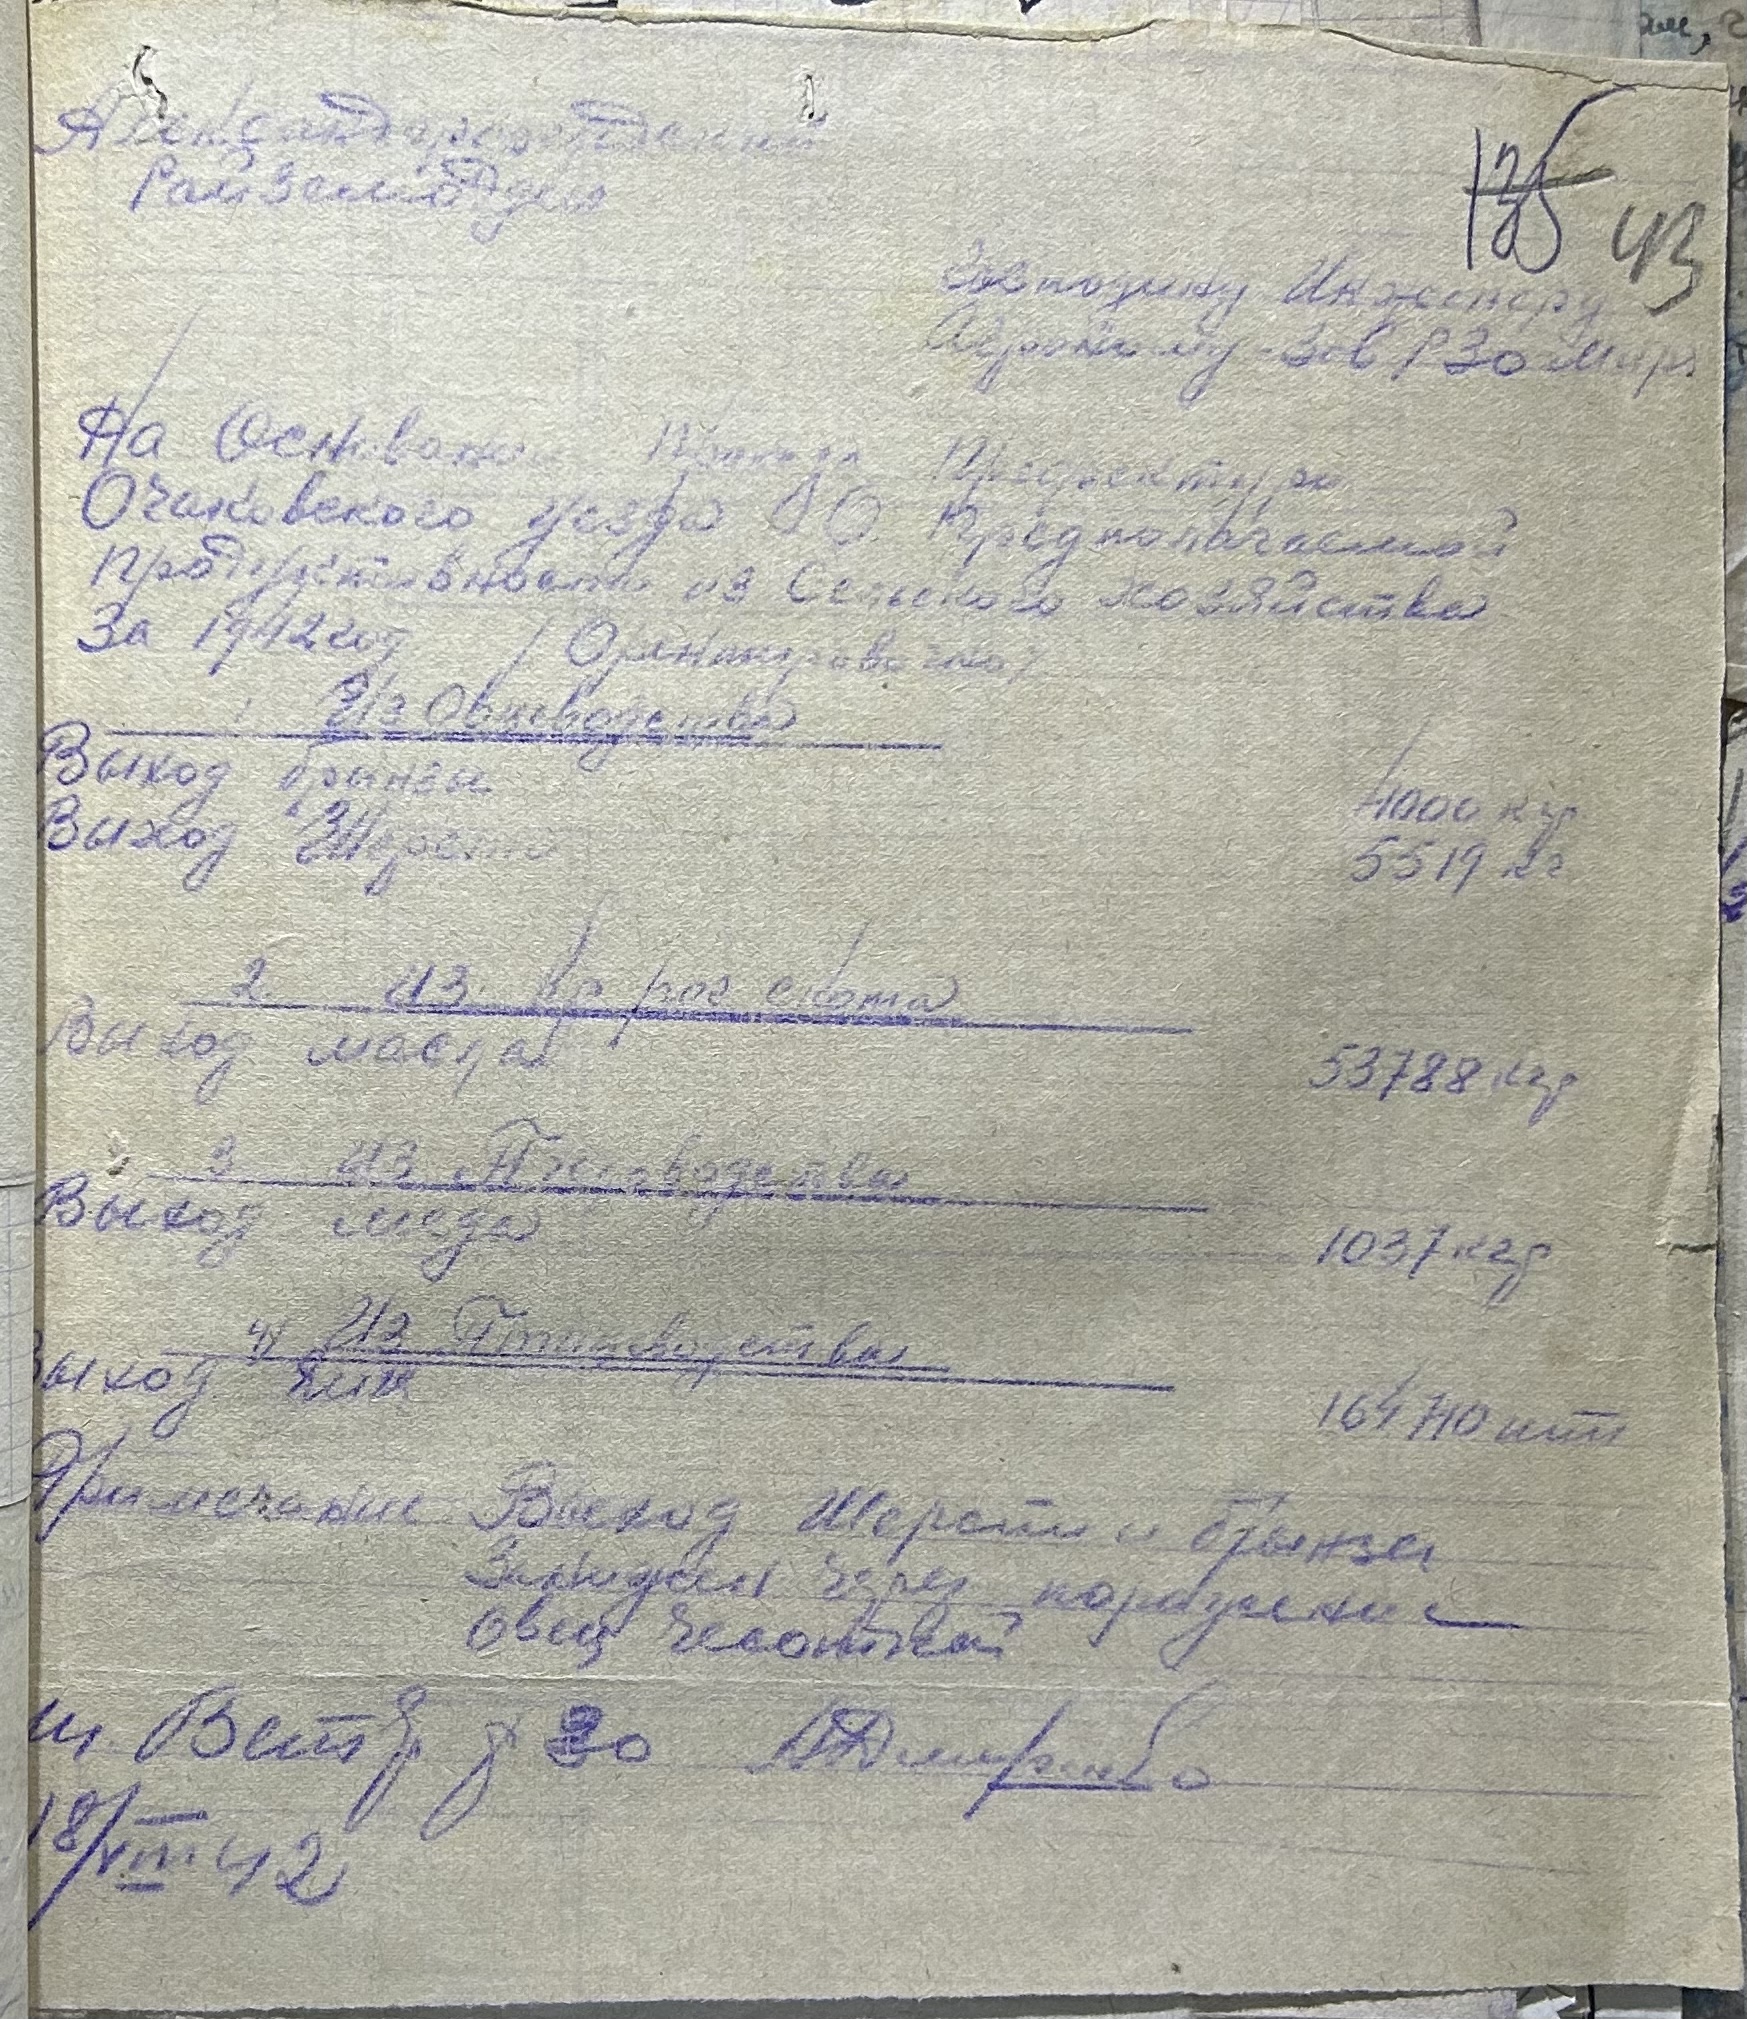 Александерфельдский
Райземотдел
135 43
Господину Инженеру
Агроному Зав РЗО
На Основании Приказа Префектури
Очаковского уезда О Предполагаемой
продуктивности из Сельского хозяйства
За 1942 год / Ориентировочно /
1 Из Овцеводства
Выход брынзы 4000 кгр
Выход Шерсти 5519 кг
2. Из кр рог скота
Выход масла 53788 кгр
3 Из Пчеловодства
Выход меда 1037 кгр
4) Из Птицеводства
Выход яиц 164710 шт
Примечание Выход Шерсти и брынзы
Занижен через поражение
Овец Чесоткой
18/VIII 42